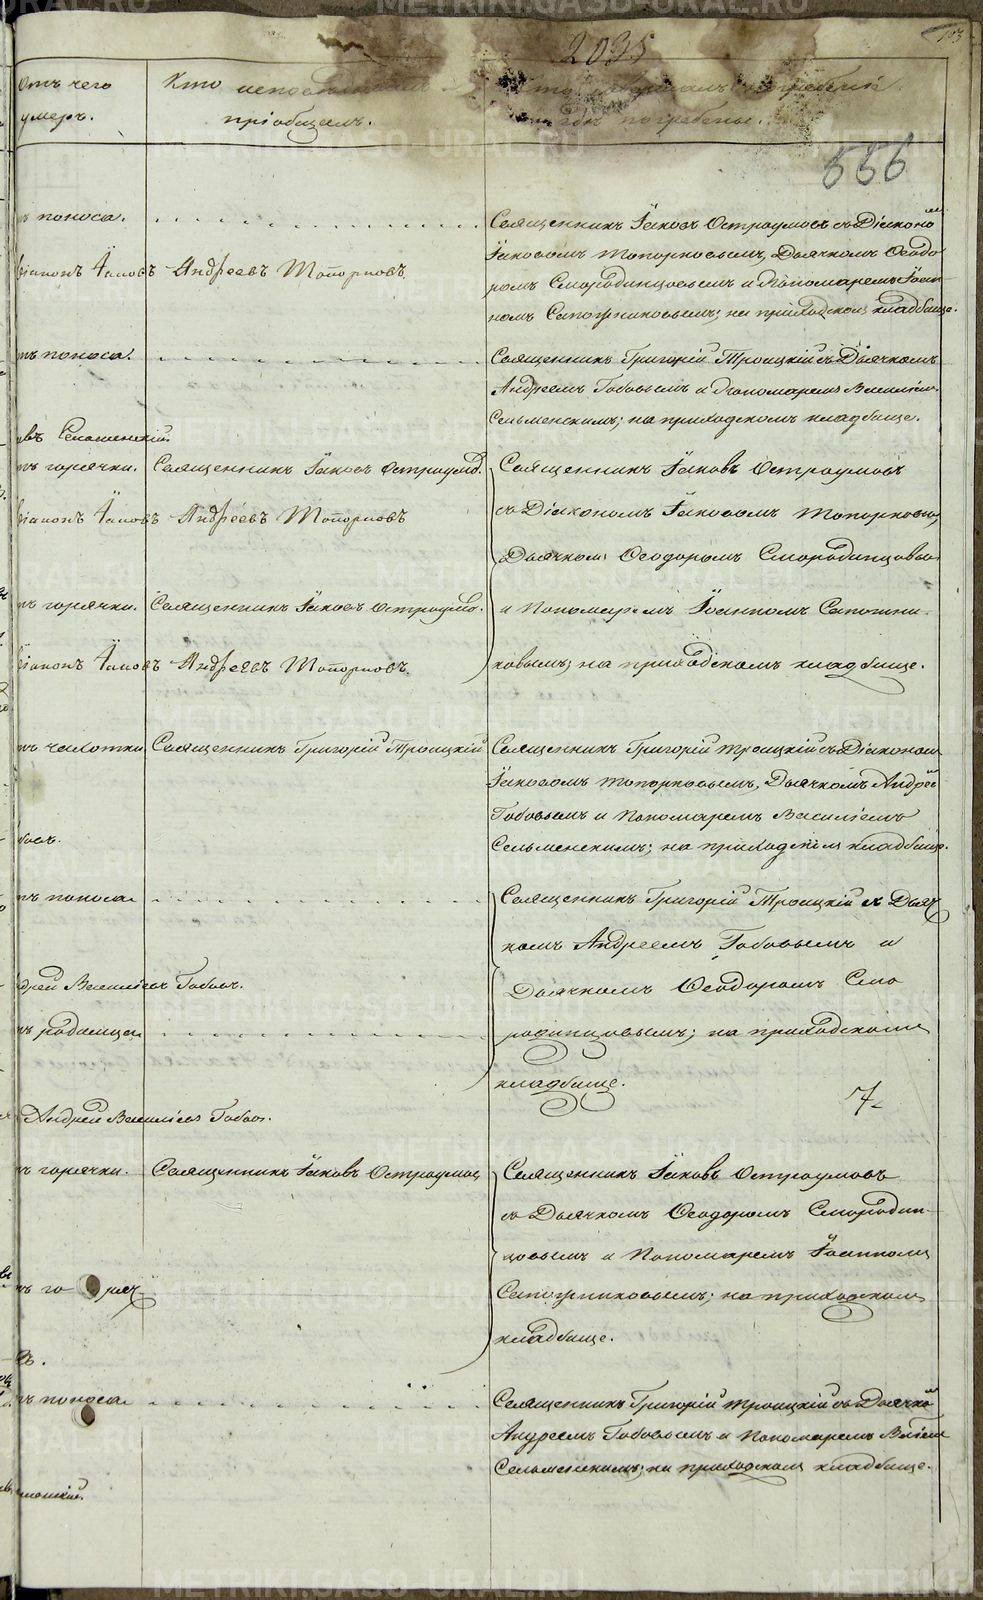 METRIKI.GASO-URAL.RU
2035
103
Отъ чего
умеръ.
Кто исповѣдывалъ и
пріобщалъ.
Кто совершалъ погребеніе
и гдѣ погребены.
556
поноса.
Священникъ Іаковъ Остроумовъ съ Діакономъ
Іаковомъ Топорковымъ, Дьячкомъ Ѳеодо
ромъ Смородинцовымъ и Пономаремъ Іоан
номъ Сапожниковымъ; на приходскомъ кладбище.
Діаконъ Іаковъ Андреевъ Топорковъ
поноса.
Священникъ Григорій Троицкій съ Дьячкомъ
Андреемъ Бобовымъ и Пономаремъ Василіемъ
Сельменскимъ; на приходскомъ кладбище.
горячки. Священникъ Іаковъ Остроумов.
Священникъ Іаковъ Остроумовъ
съ Діакономъ Іаковомъ Топорковым,
Дьячкомъ Ѳеодоромъ Смородинцовы
и Пономаремъ Іоанномъ Сапожни
ковымъ; на приходскомъ кладбище.
Діаконъ Іаковъ Андреевъ Топорковъ
горячки. Священникъ Іаковъ Остроумо.
Діаконъ Іаковъ Андреевъ Топорковъ.
чахотки Священникъ Григорій Троицкій
Священникъ Григорій Троицкій съ Діакономъ
Іаковомъ Топорковымъ, Дьячкомъ Андрей
Бобовымъ и Пономаремъ Василіемъ
Сельменскимъ; на приходскомъ кладбище.
поноса
Священникъ Григорій Троицкій съ Дьяч
комъ Андреемъ Бобовымъ и
Дьячкомъ Ѳеодоромъ Смо
родинцовымъ; на приходскомъ
кладбище.
Андрей Василіевъ Бобовъ.
родимца
7
Андрей Василіевъ Бобовъ.
горячки. Священникъ Іаковъ Остроумов
Священникъ Іаковъ Остроумовъ
съ Дьячкомъ Ѳеодоромъ Смородин
цовымъ и Пономаремъ Іоанномъ
Сапожниковымъ; на приходскомъ
кладбище.
горяч.
поноса
Священникъ Григорій Троицкій съ Дьячко
Андреемъ Бобовымъ и Пономаремъ Васіем
Сельменскимъ; на приходскомъ кладбище.